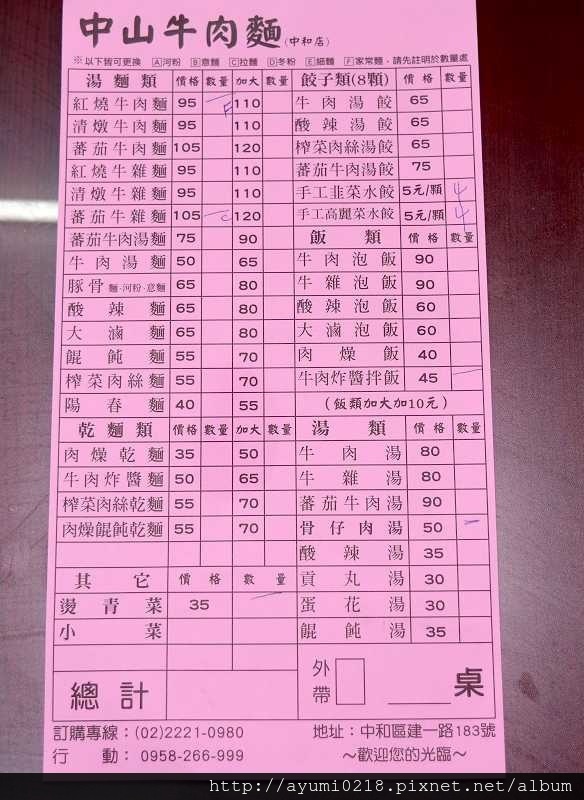 中山牛肉麵(中和店)
※以下皆可更換 A河粉 B意麵 C拉麵 D冬粉 E細麵 F家常麵,請先註明於數量處
湯麵類 價格 數量 加大 數量
紅燒牛肉麵 95 F 110
清燉牛肉麵 95 110
蕃茄牛肉麵 105 120
紅燒牛雜麵 95 110
清燉牛雜麵 95 110
蕃茄牛雜麵 105 C 120
蕃茄牛肉湯麵 75 90
牛肉湯麵 50 65
豚骨麵.河粉.意麵 65 80
酸辣麵 65 80
大滷麵 65 80
餛飩麵 55 70
榨菜肉絲麵 55 70
陽春麵 40 55
乾麵類 價格 數量 加大 數量
肉燥乾麵 35 50
牛肉炸醬麵 50 65
榨菜肉絲乾麵 55 70
肉燥餛飩乾麵 55 70
其它 價格 數量
燙青菜 35
小菜
總計
餃子類(8顆) 價格 數量
牛肉湯餃 65
酸辣湯餃 65
榨菜肉絲湯餃 65
蕃茄牛肉湯餃 75
手工韭菜水餃 5元/顆 4
手工高麗菜水餃 5元/顆 4
飯類 價格 數量
牛肉泡飯 90
牛雜泡飯 90
酸辣泡飯 60
大滷泡飯 60
肉燥飯 40
牛肉炸醬拌飯 45
(飯類加大加10元)
湯類 價格 數量
牛肉湯 80
牛雜湯 80
蕃茄牛肉湯 90
骨仔肉湯 50
酸辣湯 35
貢丸湯 30
蛋花湯 30
餛飩湯 35
外帶 桌
訂購專線:(02)2221-0980
行動:0958-266-999
地址:中和區建一路183號
~歡迎您的光臨~
http://ayumi0218.pixnet.net/album